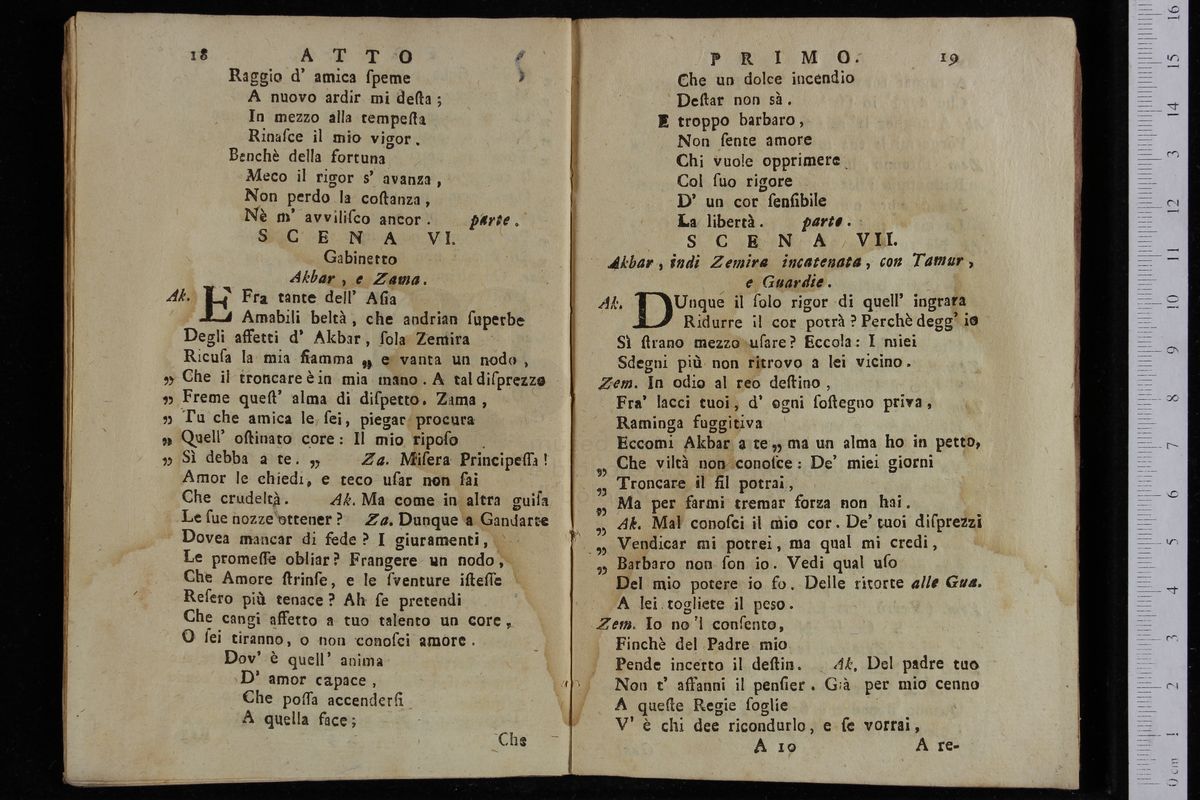 18 ATTO
Raggio d' amica ſpeme
A nuovo ardir mi deſta;
In mezzo alla tempeſta
Rinaſce il mio vigor.
Benchè della fortuna
Meco il rigor s' avanza,
Non perdo la coſtanza,
Nè m' avviliſco ancor. parte.
SCENA VI.
Gabinetto
Akbar, e Zama.
Ak. È Fra tante dell' Aſia
Amabili beltà, che andrian ſuperbe
Degli affetti d' Akbar, ſola Zemira
Ricuſa la mia fiamma „ e vanta un nodo,
„ Che il troncare è in mia mano. A tal diſprezzo
„ Freme queſt' alma di diſpetto. Zama,
„ Tu che amica le ſei, piegar procura
„ Quell' oſtinato core: Il mio ripoſo
„ Sì debba a te. „ Za. Miſera Principeſſa!
Amor le chiedi, e teco uſar non ſai
Che crudeltà. Ak. Ma come in altra guiſa
Le ſue nozze ottener? Za. Dunque a Gandarte
Dovea mancar di fede? I giuramenti,
Le promeſſe obliar? Frangere un nodo,
Che Amore ſtrinſe, e le ſventure iſteſſe
Reſero più tenace? Ah ſe pretendi
Che cangi affetto a tuo talento un core,
O ſei tiranno, o non conoſci amore.
Dov' è quell' anima
D' amor capace,
Che poſſa accenderſi
A quella face;
Che
PRIMO. 19
Che un dolce incendio
Deſtar non sà.
E troppo barbaro,
Non ſente amore
Chi vuole opprimere
Col ſuo rigore
D' un cor ſenſibile
La libertà. parte.
SCENA VII.
Akbar, indi Zemira incatenata, con Tamur,
e Guardie.
Ak. DUnque il ſolo rigor di quell' ingrata
Ridurre il cor potrà? Perchè degg' io
Sì ſtrano mezzo uſare? Eccola: I miei
Sdegni più non ritrovo a lei vicino.
Zem. In odio al reo deſtino,
Fra' lacci tuoi, d' ogni ſoſtegno priva,
Raminga fuggitiva
Eccomi Akbar a te „ ma un alma ho in petto,
„ Che viltà non conoſce: De' miei giorni
„ Troncare il fil potrai,
„ Ma per farmi tremar forza non hai.
„ Ak. Mal conoſci il mio cor. De' tuoi diſprezzi
„ Vendicar mi potrei, ma qual mi credi,
„ Barbaro non ſon io. Vedi qual uſo
Del mio potere io fo. Delle ritorte alle Gua.
A lei togliete il peso.
Zem. Io no 'l conſento,
Finchè del Padre mio
Pende incerto il deſtin. Ak. Del padre tuo
Non t' affanni il penſier. Già per mio cenno
A queſte Regie ſoglie
V' è chi dee ricondurlo, e ſe vorrai,
A 10 A re-
0 cm 1 2 3 4 5 6 7 8 9 10 11 12 13 14 15 16